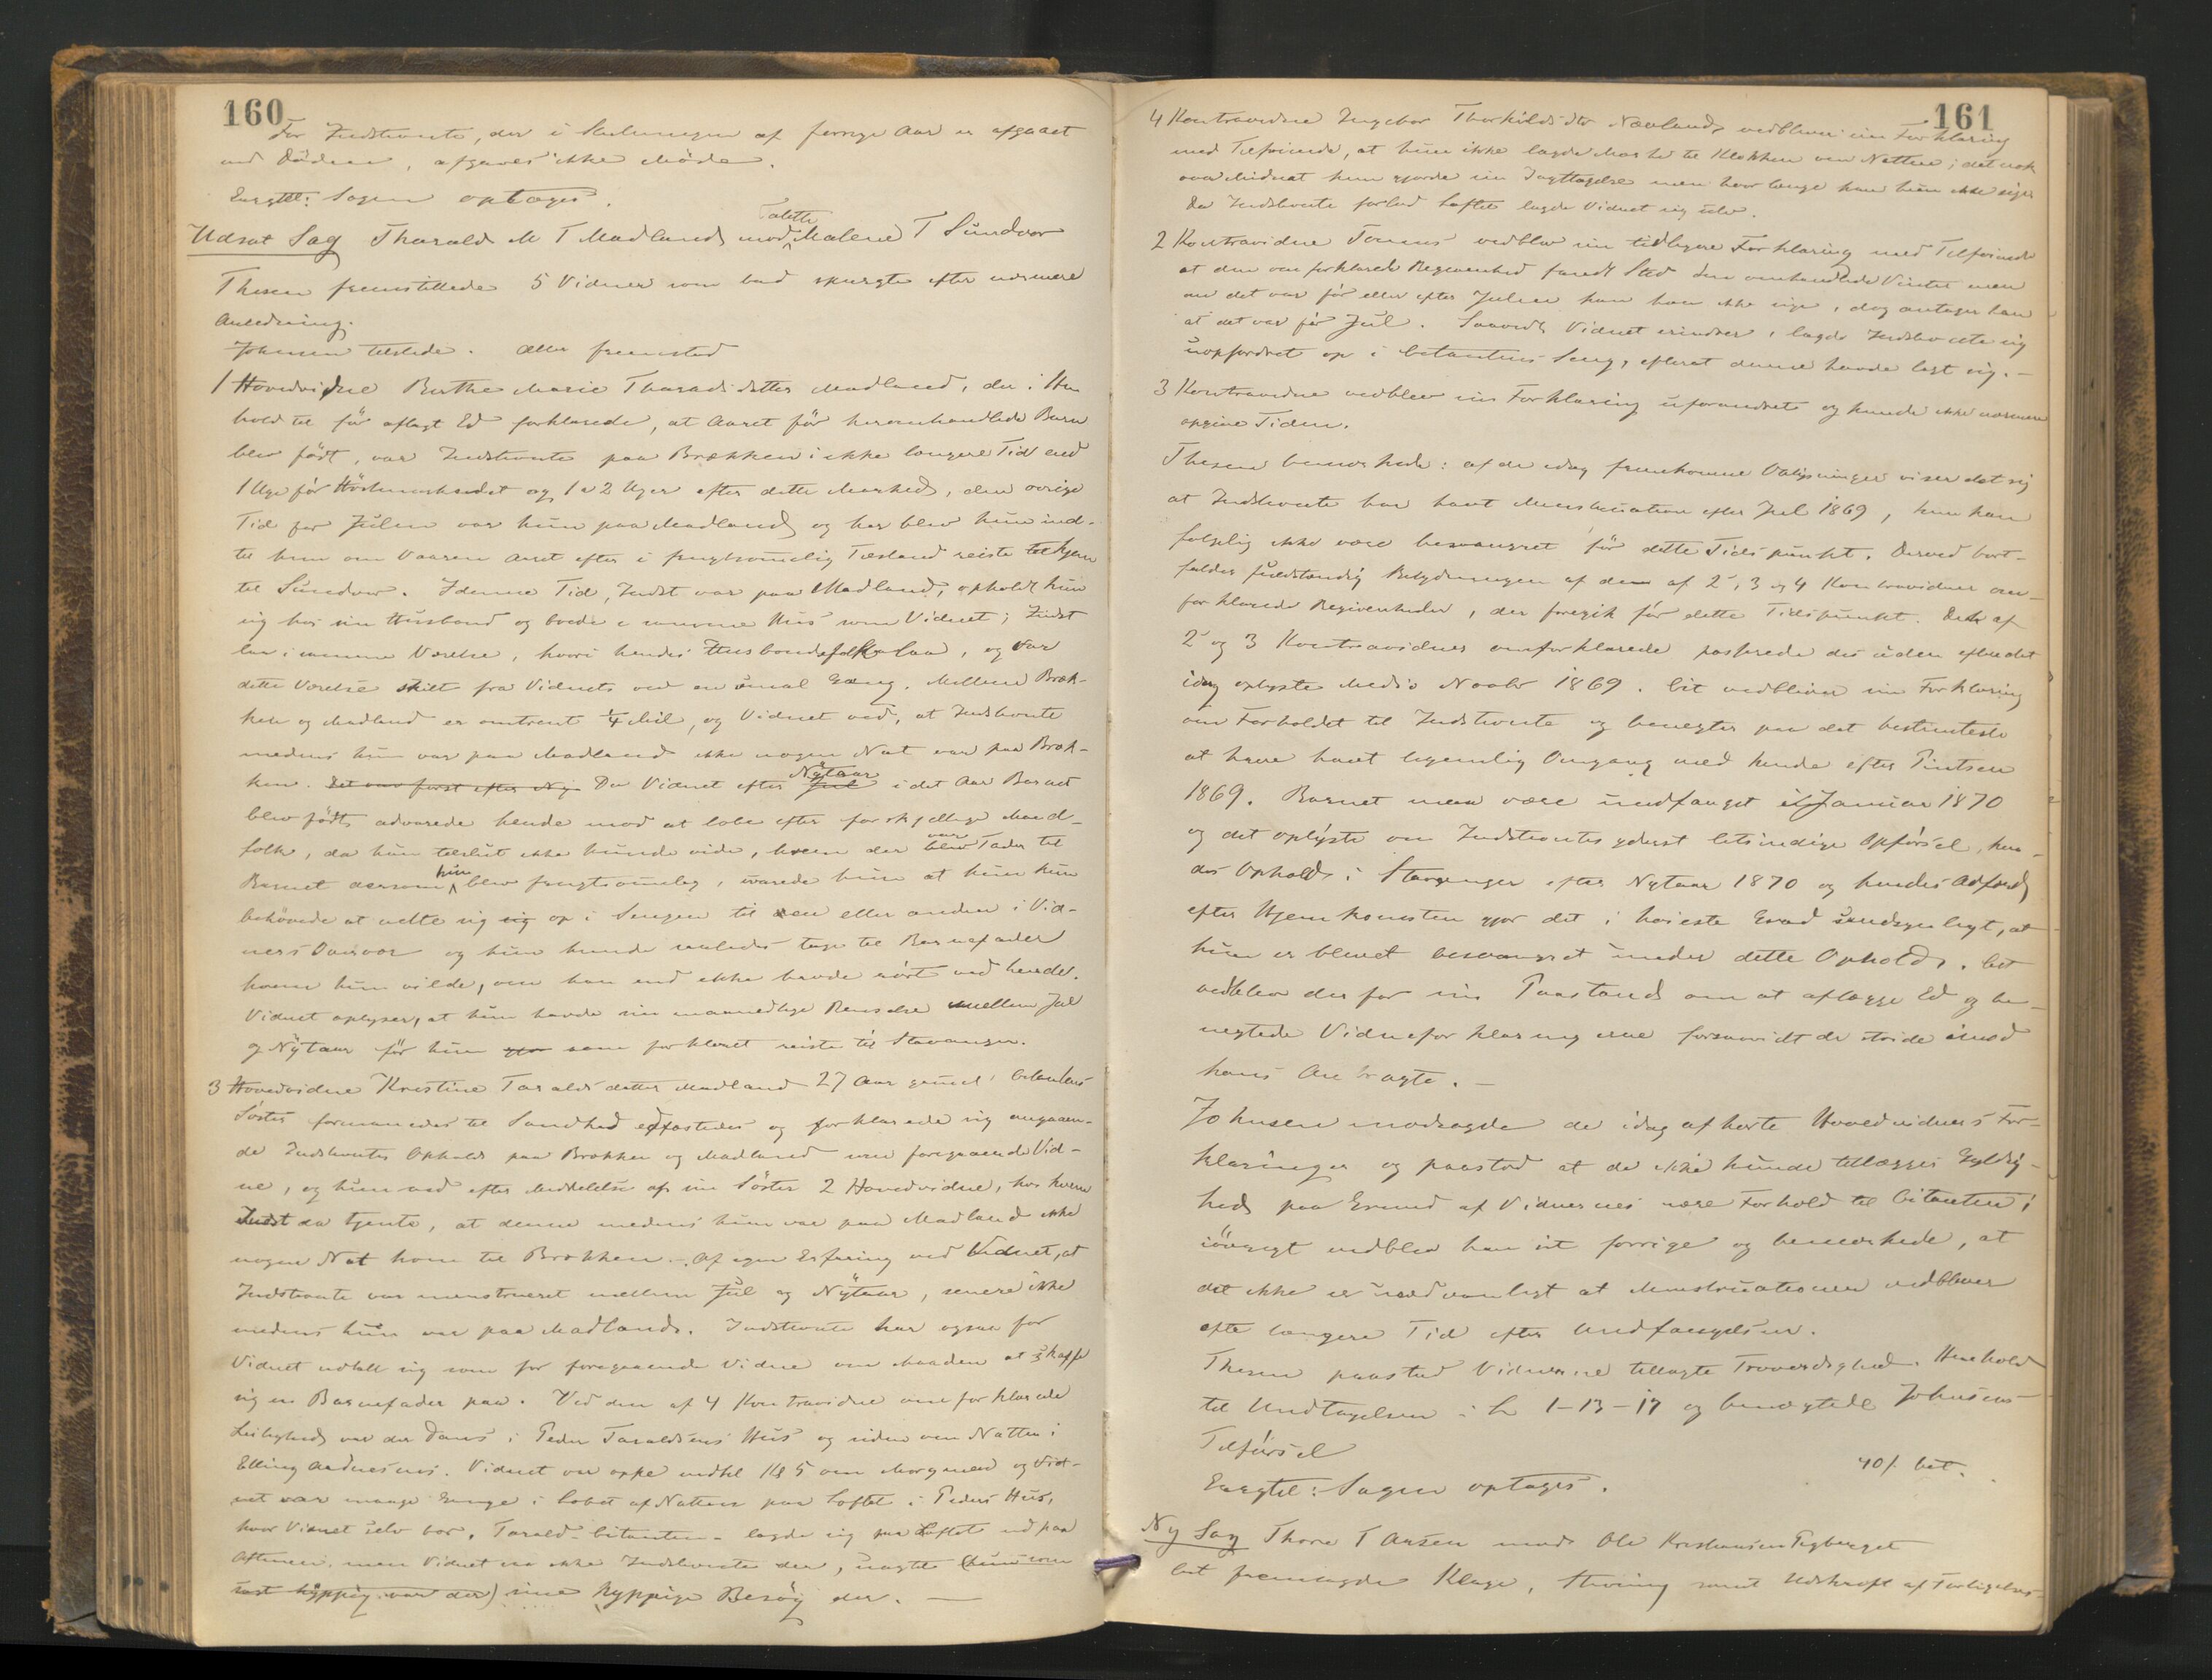 160
For Indstevnte, der i Slutningen af forrige Aar er afgaaet
ved Döden, afgaves ikke Möde.
Eragtet: Sagen optages.
Udsat Sag Tharald M T Madland mod Talette Malene T Sundvor
Thesen fremstillede 5 Vidner som bad spurgte efter nærmere
Anledning.
Johnsen tilstede. Atter fremstod
1 Hovedvidne Berthe Marie Tharaldsdatter Madland, der i Hen
hold til för aflagt Ed forklarede, at Aaret för heromhandlede Barn
blev födt, var Indstevnte paa Brækken i ikke længere Tid end
1 Uge för Höstmarkedet og 1 a 2 Uger efter dette Marked, den övrige
Tid för Julen var hun paa Madland og her blev hun ind-
til hun om Vaaren Aaret efter i frugtsommelig Tilstand reiste hjem
til Sundvor. I denne Tid, Indst var paa Madland, opholdt hun
sig hos sin Husbond og boede i samme Hus som Vidnet; Indst
laa i samme Værelse, hvori hendes Husbondsfolk laa, og var
dette Værelse skilt fra Vidnets ved en smal Gang. Mellem Bræk-
ken og Madland er omtrent 1/4 Mil, og Vidnet ved, at Indstevnte
medens hun var paa Madland ikke nogen Nat var paa Bræk-
ken. Det var först efter Ny Da Vidnet efter Jul Nytaar i det Aar Barnet
blev födt advarede hende mod at löbe efter forskjellige Mand-
folk, da hun tilslut ikke kunde vide, hvem der blev var Fader til
Barnet dersom hun blev frugtsommelig, svarede hun at hun kun
behövede at sætte sig sig op i Sengen til en eller anden i Vid-
ners Overvær og hun kunde saaledes tage til Barnefader
hvem hun vilde, om han end ikke havde rört ved hende.
Vidnet oplyser, at hun havde sin maanedlige Renselse mellem Jul
og Nytaar för hun som forklaret reiste til Stavanger.
3 Hovedvidne Kristine Taraldsdatter Madland 27 Aar gammel Citantens
Söster formanedes til Sandhed edfæstedes og forklarede sig angaaen-
de Indstevntes Ophold paa Brækken og Madland som foregaaende Vid-
ne, og hun ved efter Meddelelse af sin Söster 2 Hovedvidne, hos hvem
Indst da tjente, at denne medens hun var paa Madland ikke
nogen Nat kom til Brækken. - Af egen Erfaring ved Vidnet, at
Indstevnte var menstrueret mellem Jul og Nytaar, senere ikke
medens hun var paa Madland. Indstevnte har ogsaa for
Vidnet udtalt sig som for foregaaende Vidne om Maaden at skaffe
sig en Barnefader paa. Ved den af 4 Kontravidne omforklarede
Leilighed var der Dans i Peder Taraldsens Hus og siden om Natten i
Elling Andersens. Vidnet var oppe indtil Kl 5 om Morgenen og Vid-
net var mange Gange i Löbet af Natten paa Loftet i Peders Hus,
hvor Vidnet selv bor. Tarald - Citanten - lagde sig paa Loftet ud paa
Aftenen, men Vidnet saa ikke Indstevnte der, uagtet (hun som
sagt hyppig var der) sine hyppige Besög der. —
161
4 Kontravidne Ingebor Thorkildsdtr Nævland vedbliver sin Forklaring
med Tilföiende, at hun ikke lagde Mærke til Klokken om Natten; det nok
over Midnat hun gjorde sin Iagttagelse men hvor længe kan hun ikke sige
Da Indstevnte forlod Loftet lagde Vidnet sig selv.
2 Kontravidne Tönnes vedblev sin tidligere Forklaring med Tilföiende
at den omforklarede Begivenhed fandt Sted den omhandlede Vinter men
om det var för eller efter Julen kan han ikke sige, dog antager han
at det var för Jul. Saavidt Vidnet erindrer, lagde Indstevnte sig
uopfordret op i Citantens Seng, efterat denne havde lagt sig. -
3 Kontravidne vedblev sin Forklaring uforandret og kunde ikke nærmere
opgive Tiden.
Thesen bemærkede: af de idag fremkomne Oplysninger viser det sig
at Indstevnte har havt Menstruation efter Jul 1869, hun kan
fölgelig ikke være besvangret för dette Tidspunkt. Derved bort-
falder fuldstændig Betydningen af de af 2, 3 og 4 Kontravidner om-
forklarede Begivenheder, der foregik för dette Tidspunkt. De af
2 og 3 Kontravidner omforklarede passerede des uden efter det
idag oplyste Medio Novbr 1869. Cit vedbliver sin Forklaring
om Forholdet til Indstevnte og benegter paa det bestemteste
at have havt legemlig Omgang med hende efter Pintsen
1869. Barnet maa være undfanget i Januar 1870
og det oplyste om Indstevntes yderst letsindige Opförsel, hen-
des Ophold i Stavanger efter Nytaar 1870 og hendes Adfærd
efter Hjemkomsten gjör det i höieste Grad sandsynligt, at
hun er blevet besvangret under dette Ophold. Cit
vedblev derfor sin Paastand om at aflægge Ed og be-
negtede Vidneforklaringerne forsaavidt de stride imod
hans Anbragte. -
Johnsen modsagde de idag afhörte Hovedvidners For-
klaringer og paastod at de ikke kunde tillægges Gyldig-
hed paa Grund af Vidnernes nære Forhold til Citanten;
iövrigt vedblev han sit forrige og bemærkede, at
det ikke er usædvanligt at Menstruationen vedbliver
ofte længere Tid efter Undfangelsen.
Thesen paastod Vidnerne tillagte Troværdighed. Henhold
til Undtagelsen i L 1-13-17 og benægtede Johnsens
Tilförsel
40/ bet.
Eragtet: Sagen optages.
Ny Sag Thore T Aasen mod Ole Kristiansen
Cit fremlagde Klage, Stevning samt Udskrift af Forligelses-